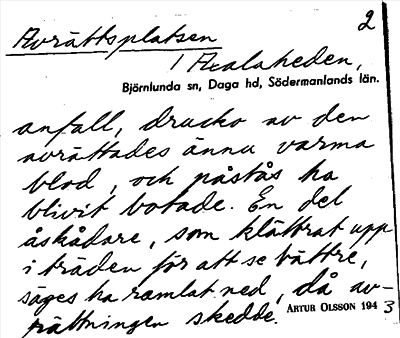 2
Avrättsplatsen
/ Axalaheden,
Björnlunda sn, Daga hd, Södermanlands län.
anfall, drucko av den
avrättades ännu varma
blod, och påstås ha
blivit botade. En del
åskådare, som klättrat upp
i träden för att se bättre,
säges ha ramlat ned, då av-
rättningen skedde.
ARTUR OLSSON 1943